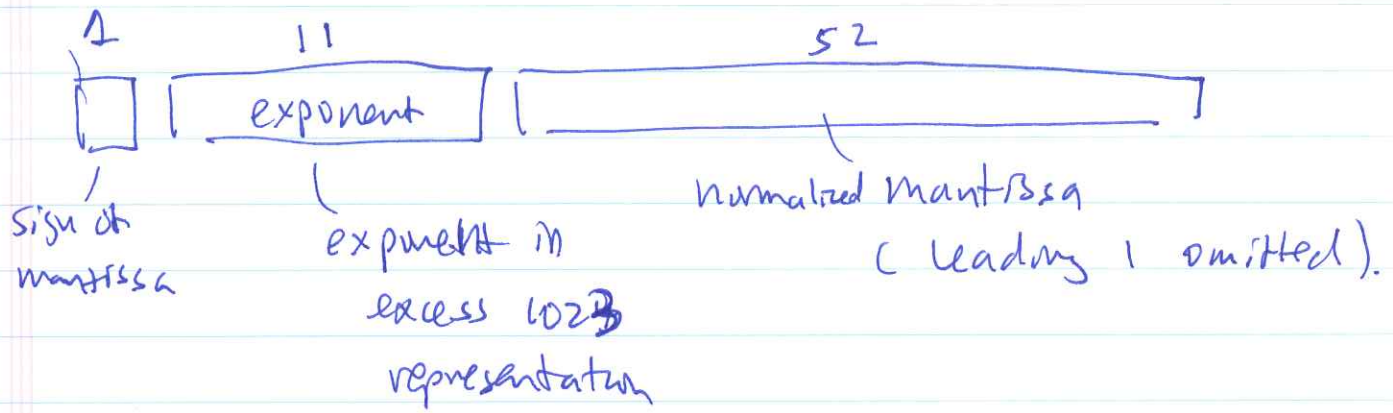 1 11 52
exponent
sign of
mantissa
exponent in
excess 1023
representation
normalized mantissa
(leading 1 omitted).